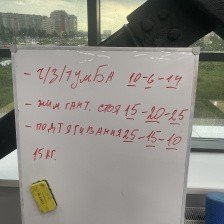 - Ч/З/ТУМБА 10-6-14
- ЖИМ ГАНТ. СТОЯ 15-20-25
- ПОДТЯГИВАНИЯ 25-15-10
15 КГ.